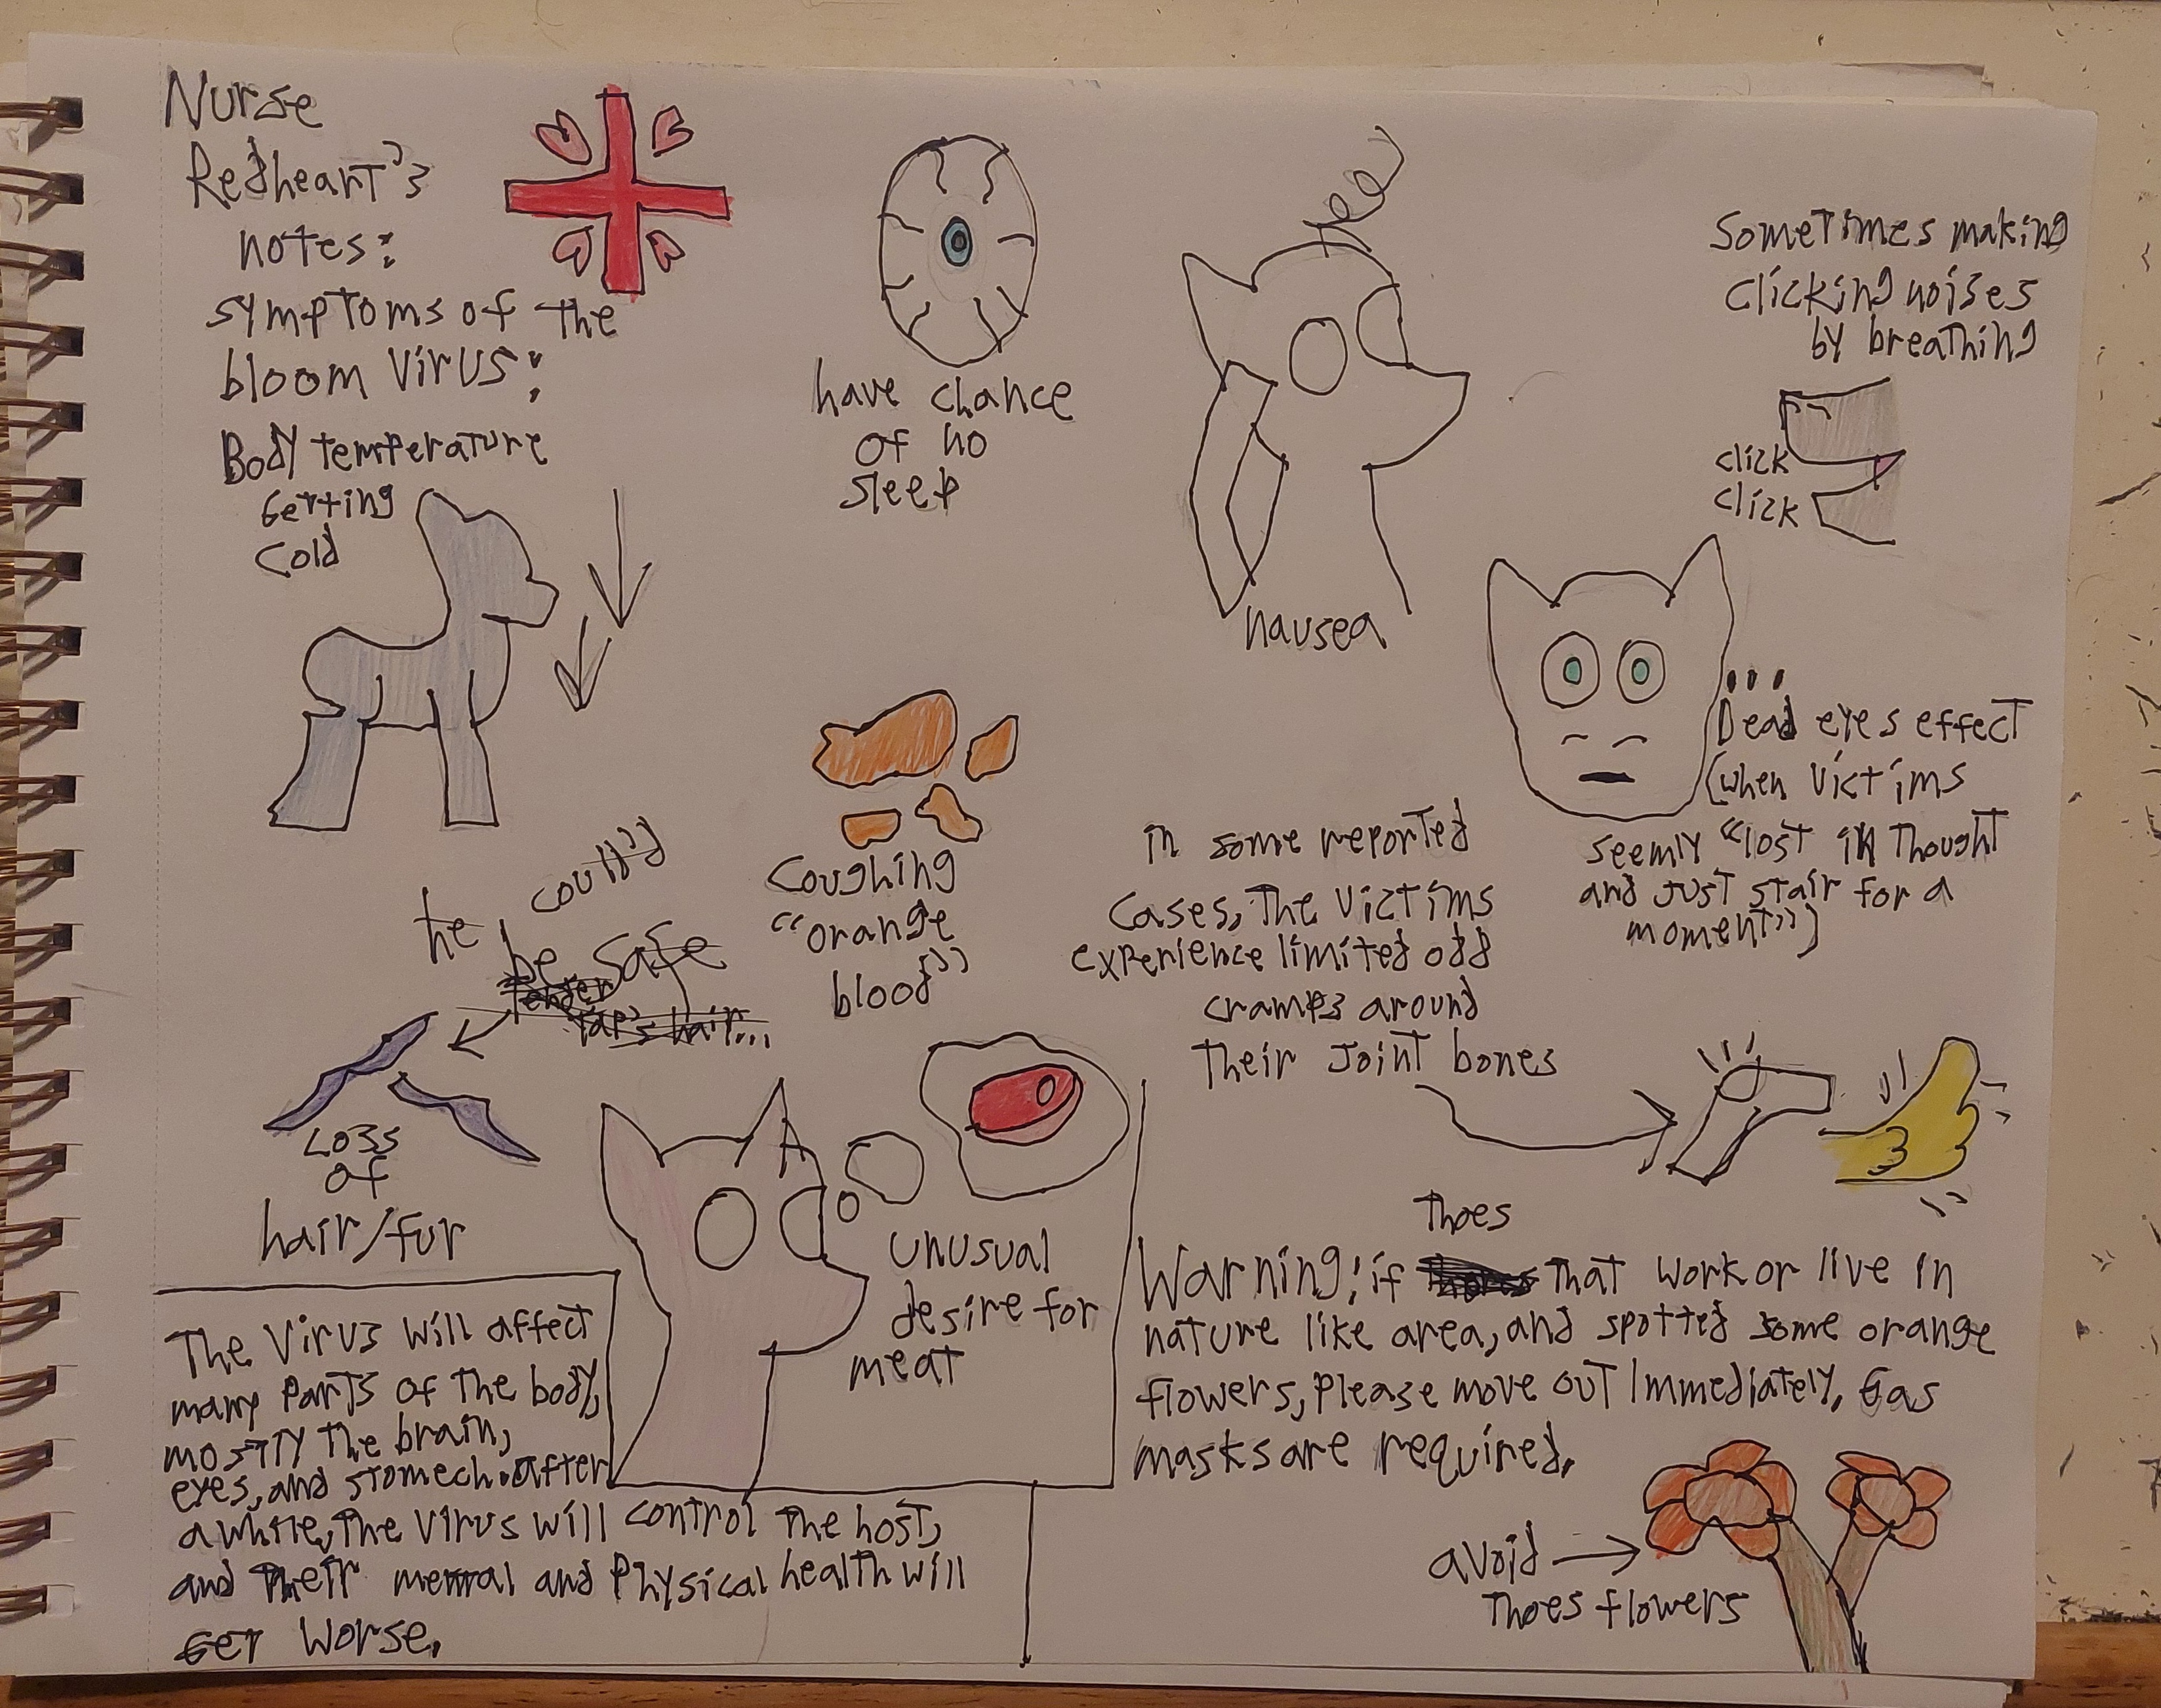 Nurse
Redheart's
notes:
symptoms of the
bloom virus:
Body temperature
Getting
cold
have chance
of no
sleep
nausea
Sometimes making
clicking noises
by breathing
click
click
...
Dead eyes effect
(when victims
seemly "lost in thought
and just stair for a
moment")
Coughing
"orange
blood"
in some reported
cases, the victims
experience limited odd
cramps around
their joint bones
he could
be safe
Tender
Tap's hair...
Loss
of
hair/fur
unusual
desire for
meat
The virus will affect
many parts of the body,
mostly the brain,
eyes, and stomech. after
awhile, the virus will control the host,
and their mental and physical health will
Get worse.
Thoes
Warning! if that work or live in
nature like area, and spotted some orange
flowers, please move out immediately. Gas
masks are required.
avoid
thoes flowers